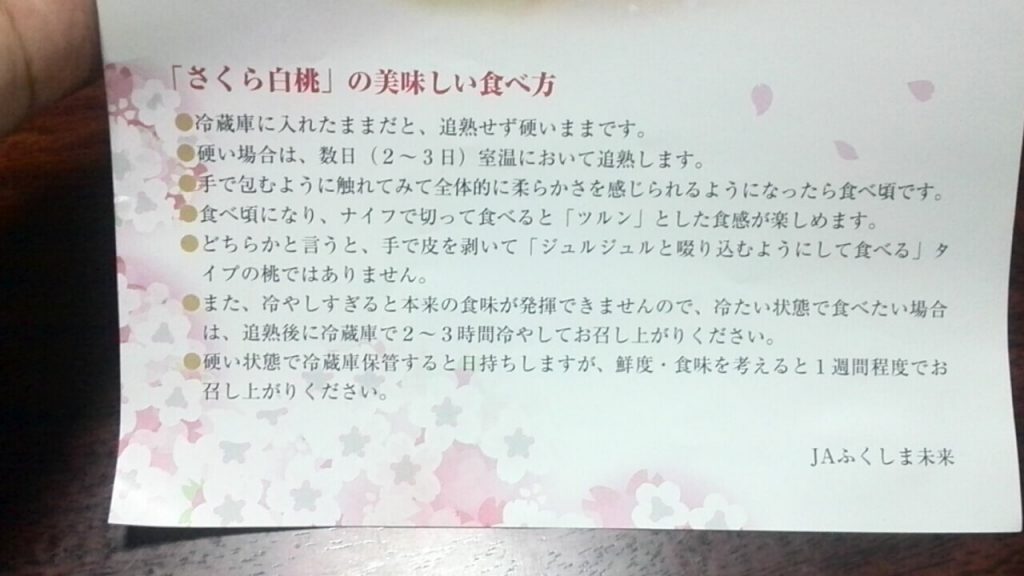 「さくら白桃」の美味しい食べ方
●冷蔵庫に入れたままだと、追熟せず硬いままです。
●硬い場合は、数日（２～３日）室温において追熟します。
●手で包むように触れてみて全体的に柔らかさを感じられるようになったら食べ頃です。
●食べ頃になり、ナイフで切って食べると「ツルン」とした食感が楽しめます。
●どちらかと言うと、手で皮を剥いて「ジュルジュルと啜り込むようにして食べる」タ
イプの桃ではありません。
●また、冷やしすぎると本来の食味が発揮できませんので、冷たい状態で食べたい場合
は、追熟後に冷蔵庫で２～３時間冷やしてお召し上がりください。
●硬い状態で冷蔵庫保管すると日持ちしますが、鮮度・食味を考えると１週間程度でお
召し上がりください。
JAふくしま未来